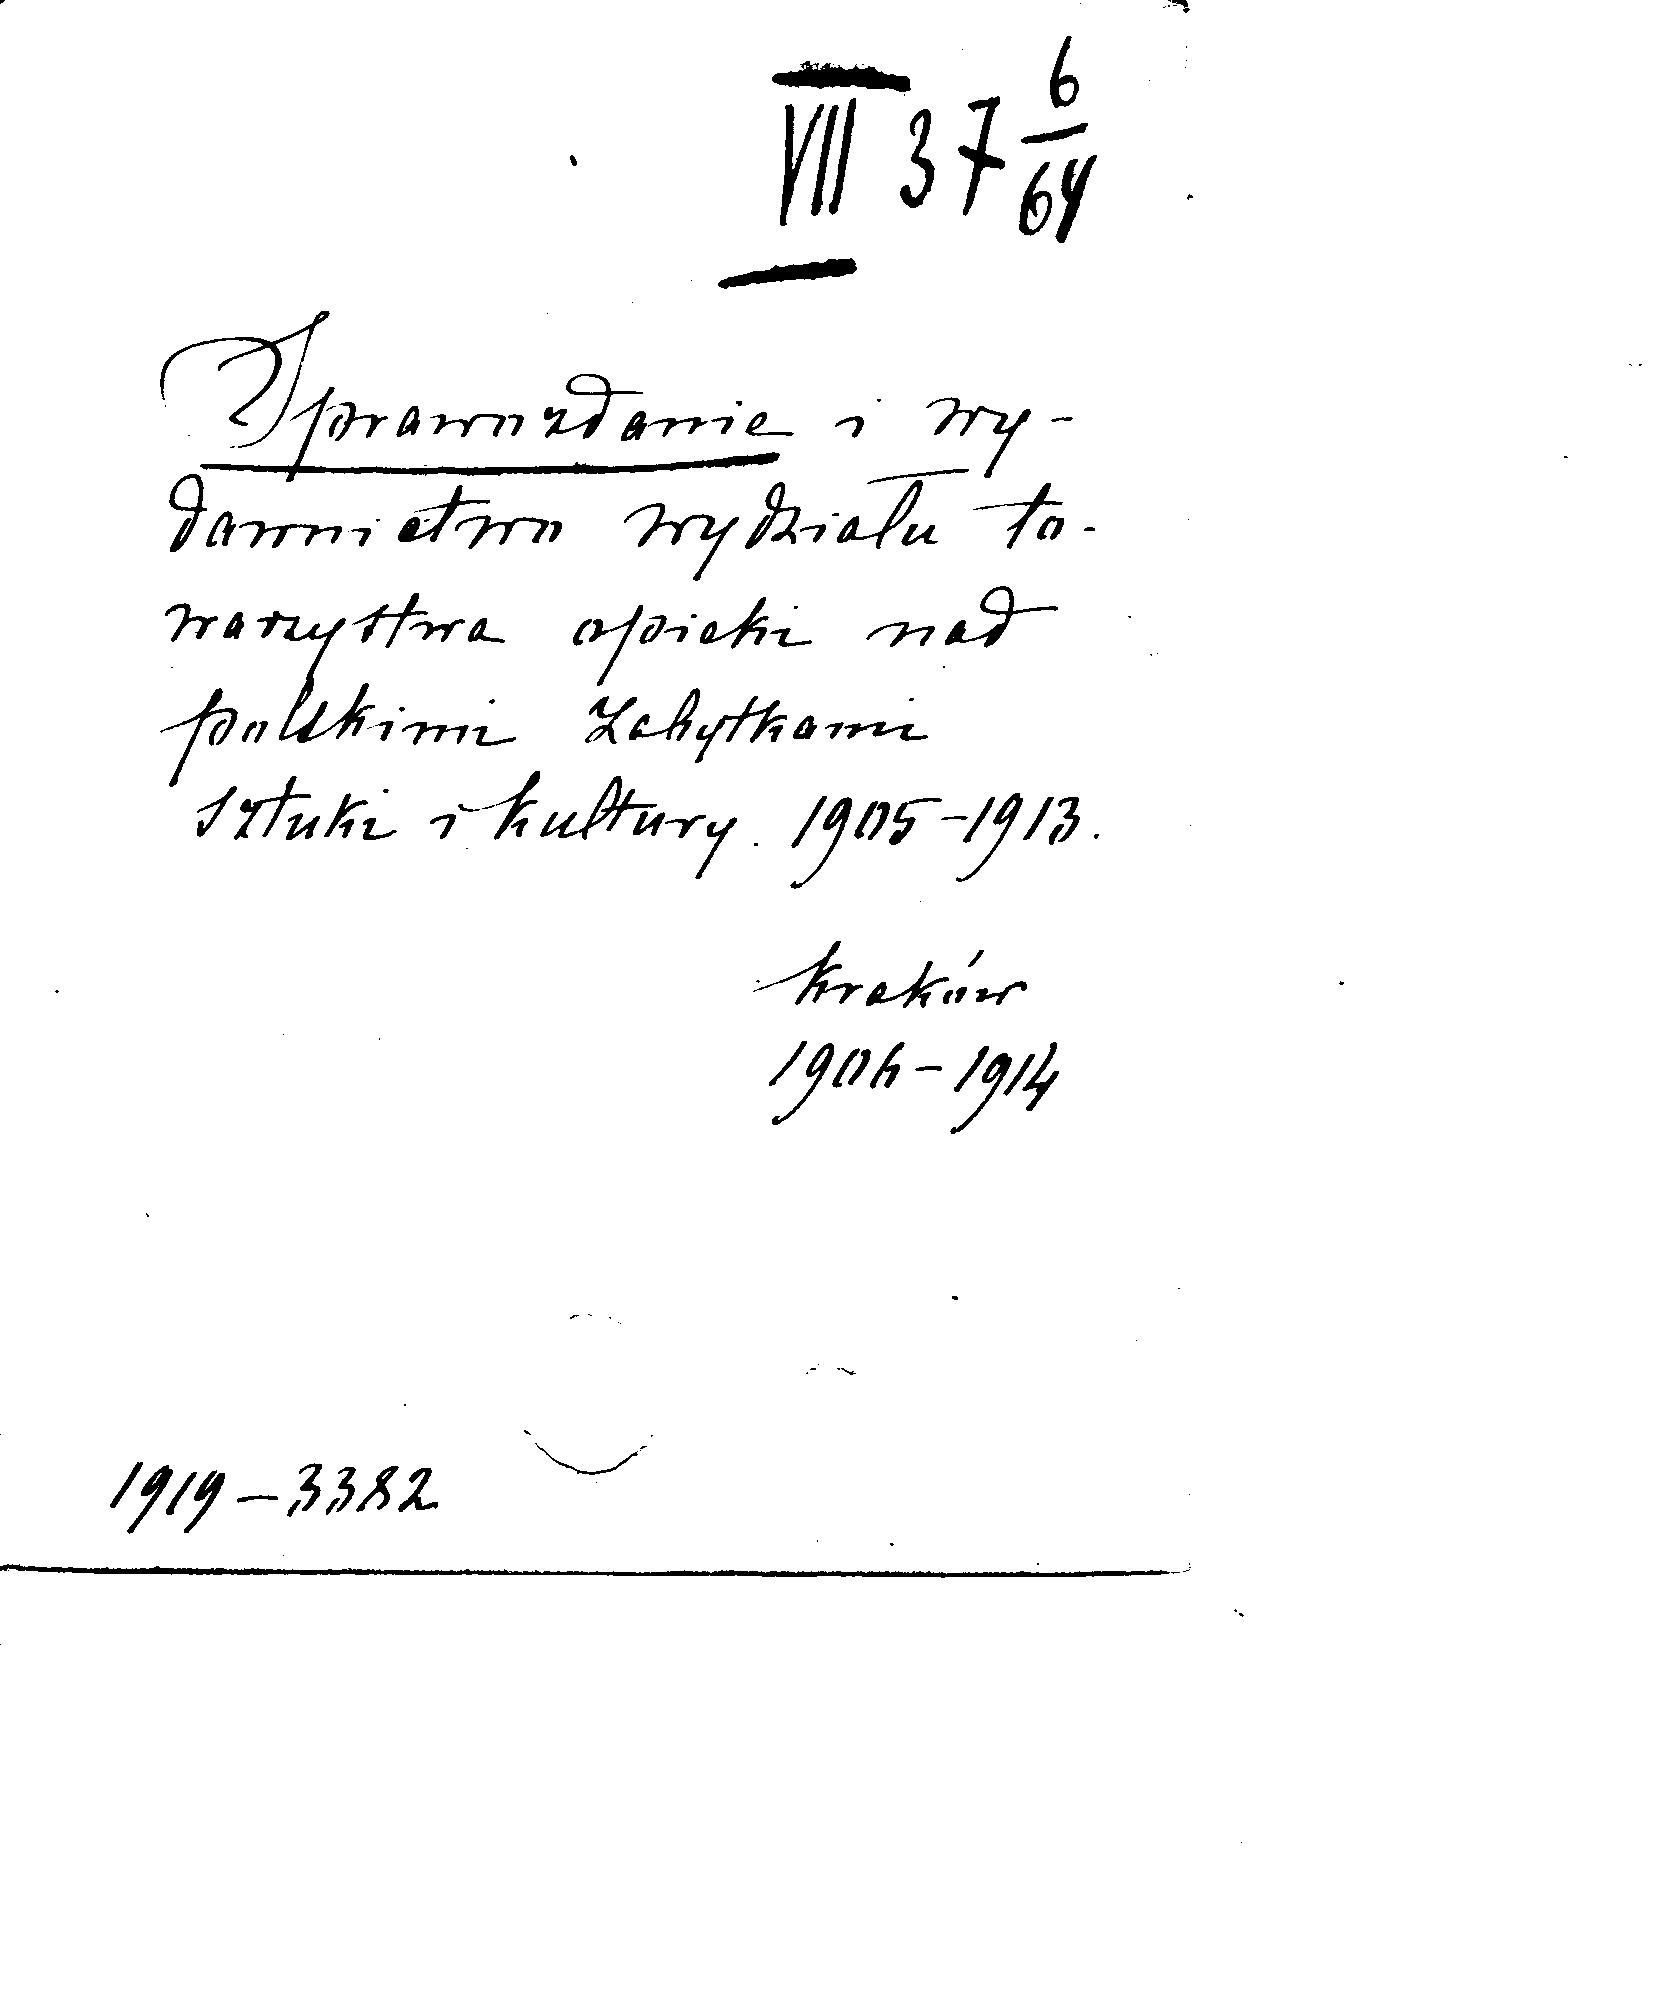 VII 37 6/64
Sprawozdanie i wy-
dawnictwo wydziału to-
warzystwa opieki nad
polskimi zabytkami
sztuki i kultury. 1905-1913.
Kraków
1906-1914
1919-3382